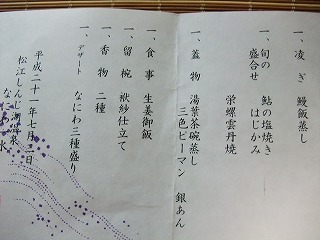 一、凌ぎ 鰻飯蒸し
一、旬の盛合せ 鮎の塩焼き
はじかみ
栄螺雲丹焼
一、蓋物 湯葉茶碗蒸し
三色ピーマン 銀あん
一、食事 生姜御飯
一、留椀 袱紗仕立て
一、香物 二種
デザート なにわ三種盛り
平成二十一年七月二日
松江しんじ湖温泉
なにわ 水